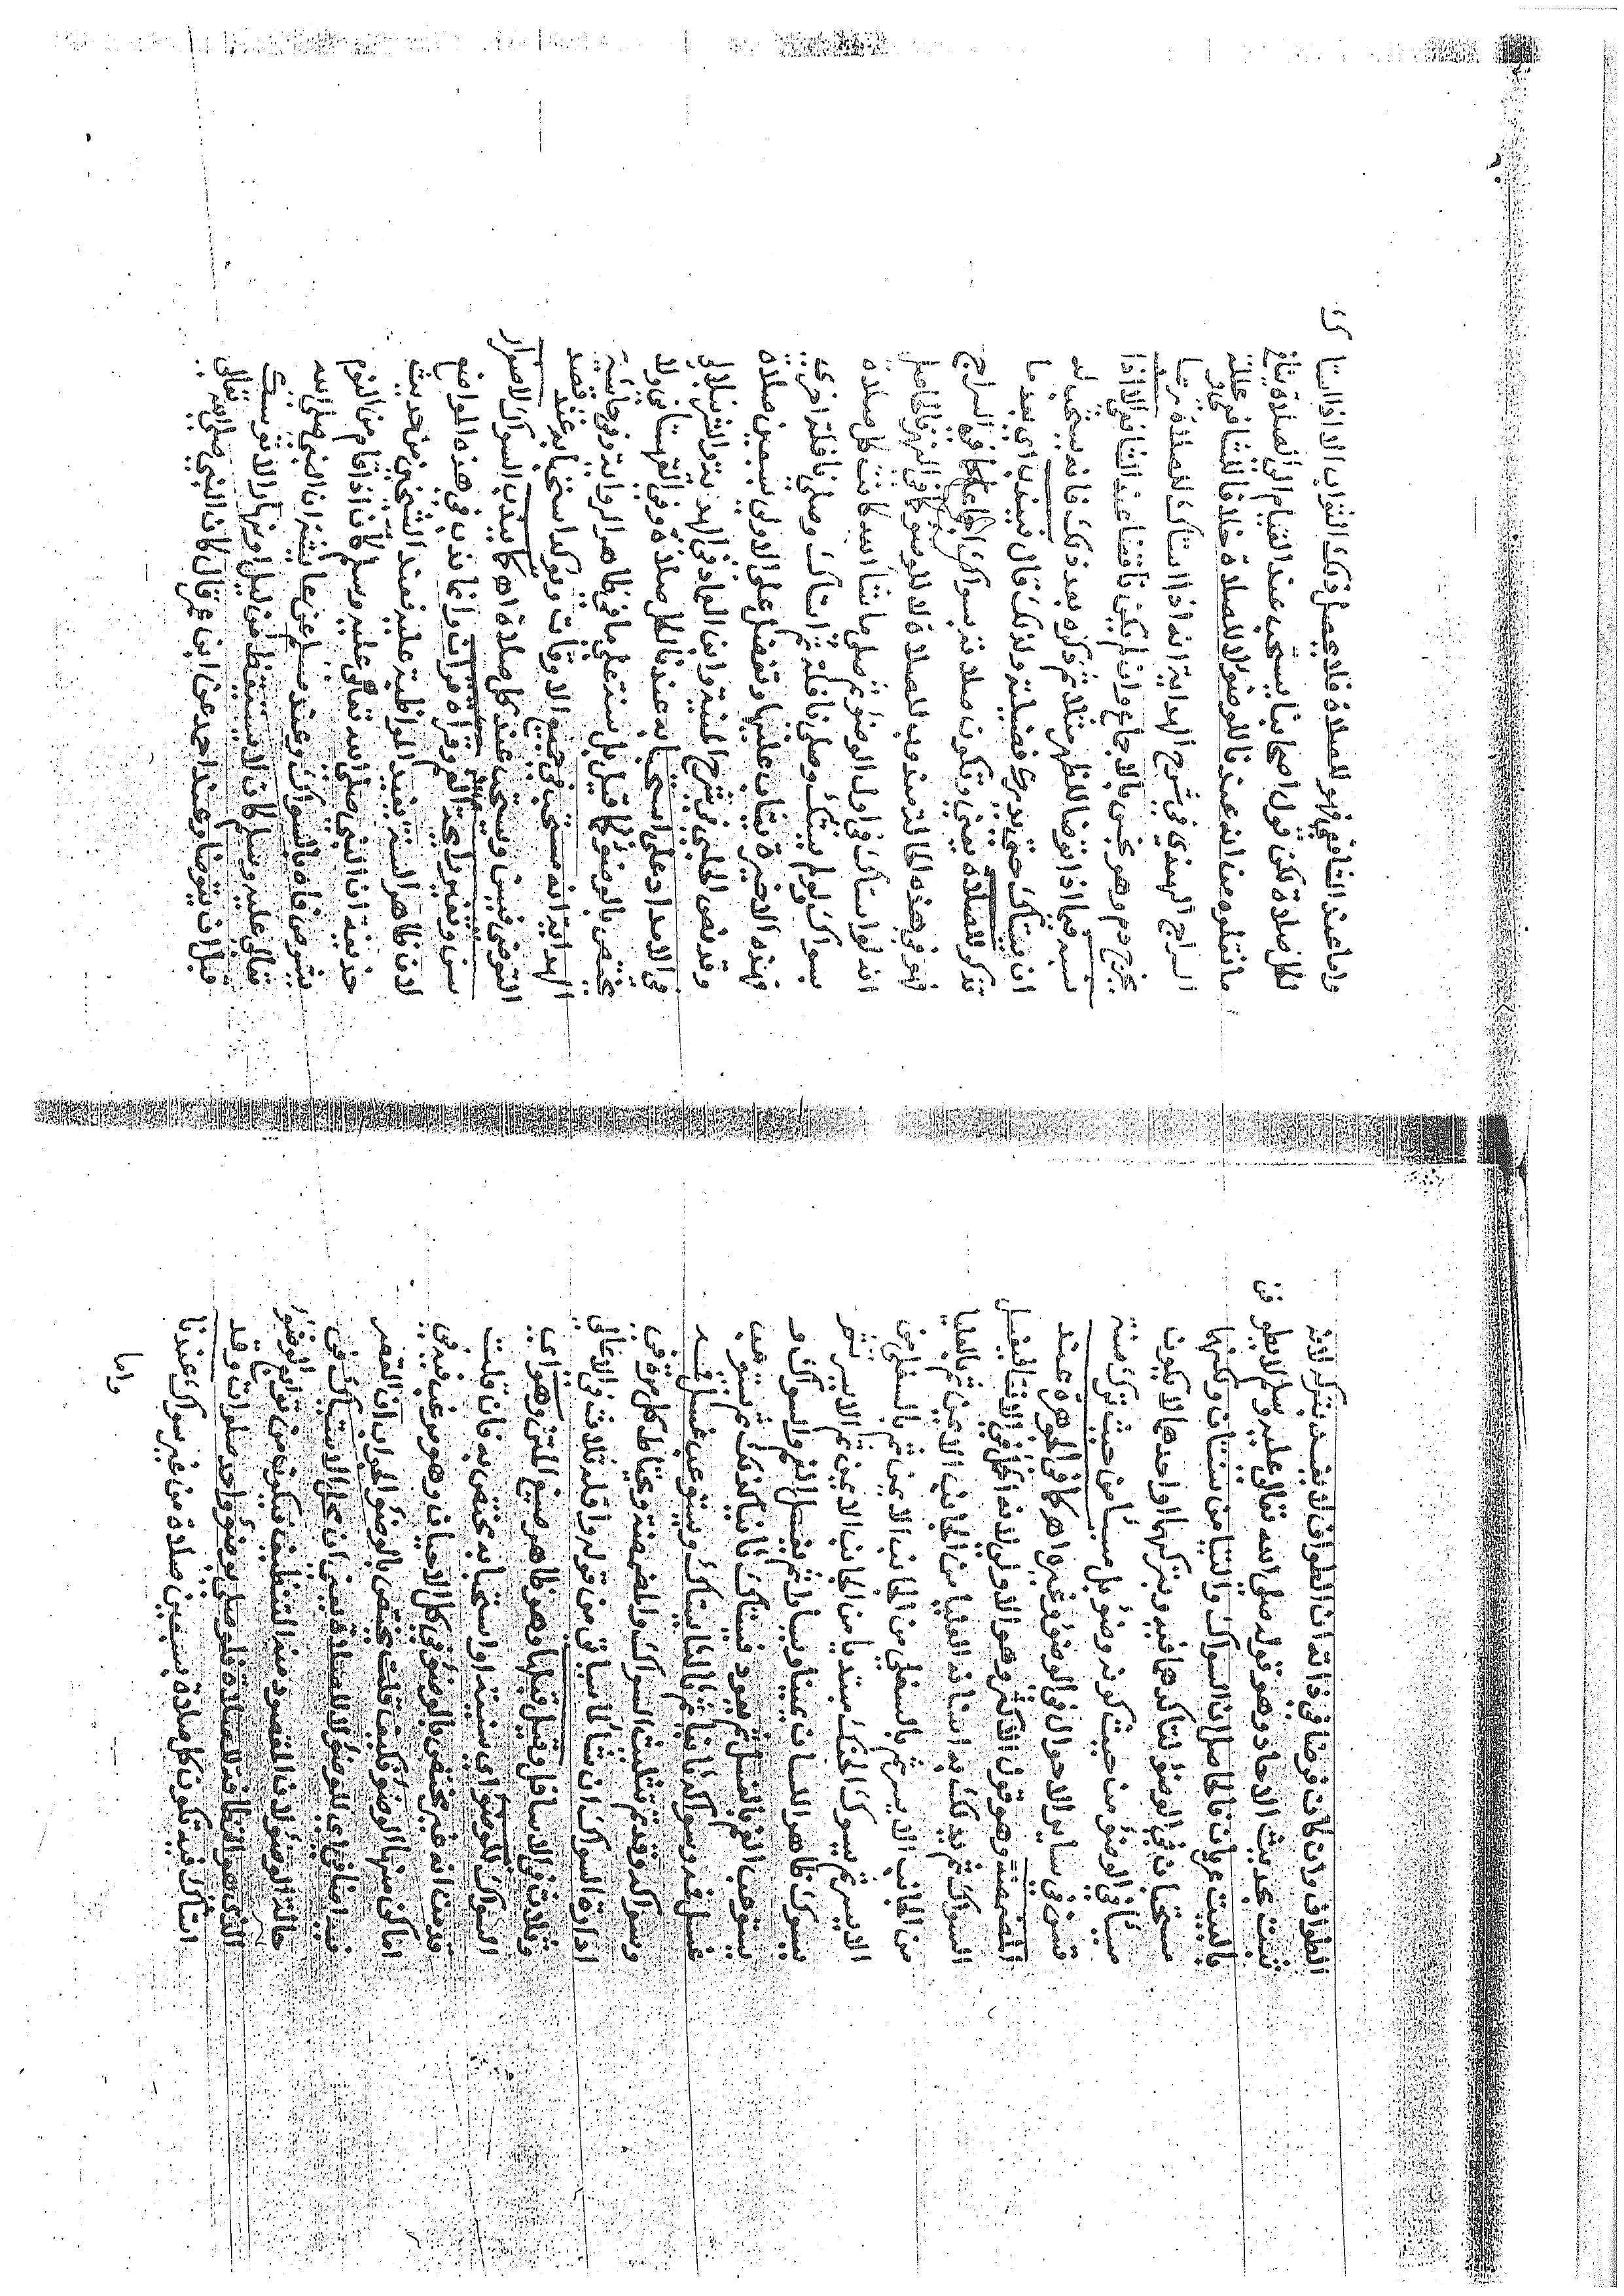 الطواف وان كانت فرضا في ذاته ان الطواف لا يفسد بتركه لانه
ثبت بحديث الاحاد وهو قوله صلى الله تعالى عليه وسلم لا يطوفن
بالبيت عريان فالحاصل ان السواك والتيامن سنتان وكلنهما
مستحبان في الوضوء لتاكدهما فيه وبتركهما او احدهما لا يكون
مسيأ في الوضوء من حيث كونه وضوء بل مسيأ من حيث تركه سنة
تسن في ساير الاحوال في الوضوء وغيره اه كما في الجوهرة عند
المضمضة وهو قول الاكثر وهو الاولى لانه اكمل في الانقا فيغسل
السواك ثم يدلك به اسنانه العليا من الجانب الايمن ثم بالعليا
من الجانب الايسر ثم بالسفلى من الجانب الايمن ثم بالسفلى من
الايسر ثم يسوك الحنك مبتديا من الجانب الايمن ثم الايسر ثم
يسوك ظاهر اللسان يمينا ويسارا ثم يغسل الفم والسواك و
يستوعب الفم بالغسل ثم يعود فيستاك ثانيا كذلك ثم يستوعب
غسل فمه وسواكه ثانيا ثم ثالثا يستاك ويستوعب غسل فمه
وسواكه وقدم تثليث السواك والمضمضة ويحتاط كل مرة في
ادارة السواك ان شا كما سياتي من قوله واقله ثلاث في الاعالي
وثلاث في الاسافل وقيل قبلها وهو ظاهر صنيع المتن وهو اي
السواك للوضوء اي سنيته او استحبابه يختص به فان قلت
قدمت انه غير مختص بالوضوء في كل الاحيان وهو مرغب فيه في
اماكن منها الوضوء فكيف قلت يختص بالوضوء الجواب ان القصر
فيه اضافي اي للوضوء لا للصلاة يعني ان محل الاستياك في
حالة الوضوء لان المقصود منه التنظيف فيكون من توابع الوضوء
الذي هو النظافة لا للصلاة فلو صلى بوضوء واحد صلوات وقد
استاك فيه تكون كل صلاة بسبعين صلاة من غير سواك عندنا
واما
واما عند الشافعي فهو للصلاة فلا يحصل ذلك الثواب الا اذا استاك
لكل صلاة لكن قول اصحابنا يستحب عند القيام الى الصلاة ينافي
ما نقلوه من انه عندنا للوضوء لا للصلاة خلافا للشافعي وعلله
السراج الهندي في شرح الهداية انه اذا استاك للصلاة ربما
يخرج دم وهو نجس بالاجماع وان لم يكن ناقضا عند الشافعي الا اذا
نسيه فيما اذا توضا للظهر مثلا ثم ذكره بعد ذلك فانه يستحب له
ان يستاك حتى يدرك فضيلته ولذلك قال فيندب اي بعد ما
تذكر للصلاة يعني وتكون صلاته بسواك اجماعا كما في السراج
فهو في هذه الحالة مندوب للصلاة لا للوضوء كما في النهر فالحاصل
انه لو استاك في اول الوضوء ثم صلى ما شا الله كانت كل صلاة
بسواك ولو لم يستك وصلى نافلة ثم استاك وصلى نافلة اخرى
فهذه الاخيرة يثاب عليها وتفضل على الاولى بسبعين صلاة
وقد نص الحلبي في شرح المنية وابن العماد في الهدية والشرنبلالي
في الامداد على استحبابه عندنا لكل صلاة وفي القهستاني ولا
يختص بالوضوء كما قيل بل سنة على ما في ظاهر الرواية وفي حاشية
الهداية انه مستحب في جميع الاوقات ويؤكد استحبابه عند قصد
التوضي فيسن ويستحب عند كل صلاة اه كما يندب السواك لاصفرار
سن وتغير رايحة الفم وقراة قران وانما ندب في هذه المواضع
لان ظاهر السنة يفيد المواظبة عليه فعند الشيخين من حديث
حذيفة ان النبي صلى الله تعالى عليه وسلم كان اذا قام من النوم
يشوص فاه بالسواك وعند مسلم عن عايشة ان النبي صلى الله
تعالى عليه وسلم كان لا يستيقظ من ليل او نهار الا تسوك
قبل ان يتوضا وعند احمد عن ابن عمر قال كان النبي صلى الله تعالى